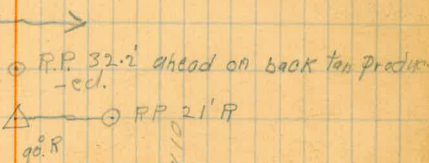 R.P. 32.2' ahead on back tan produc-
-ed.
RP 21' R
90° R